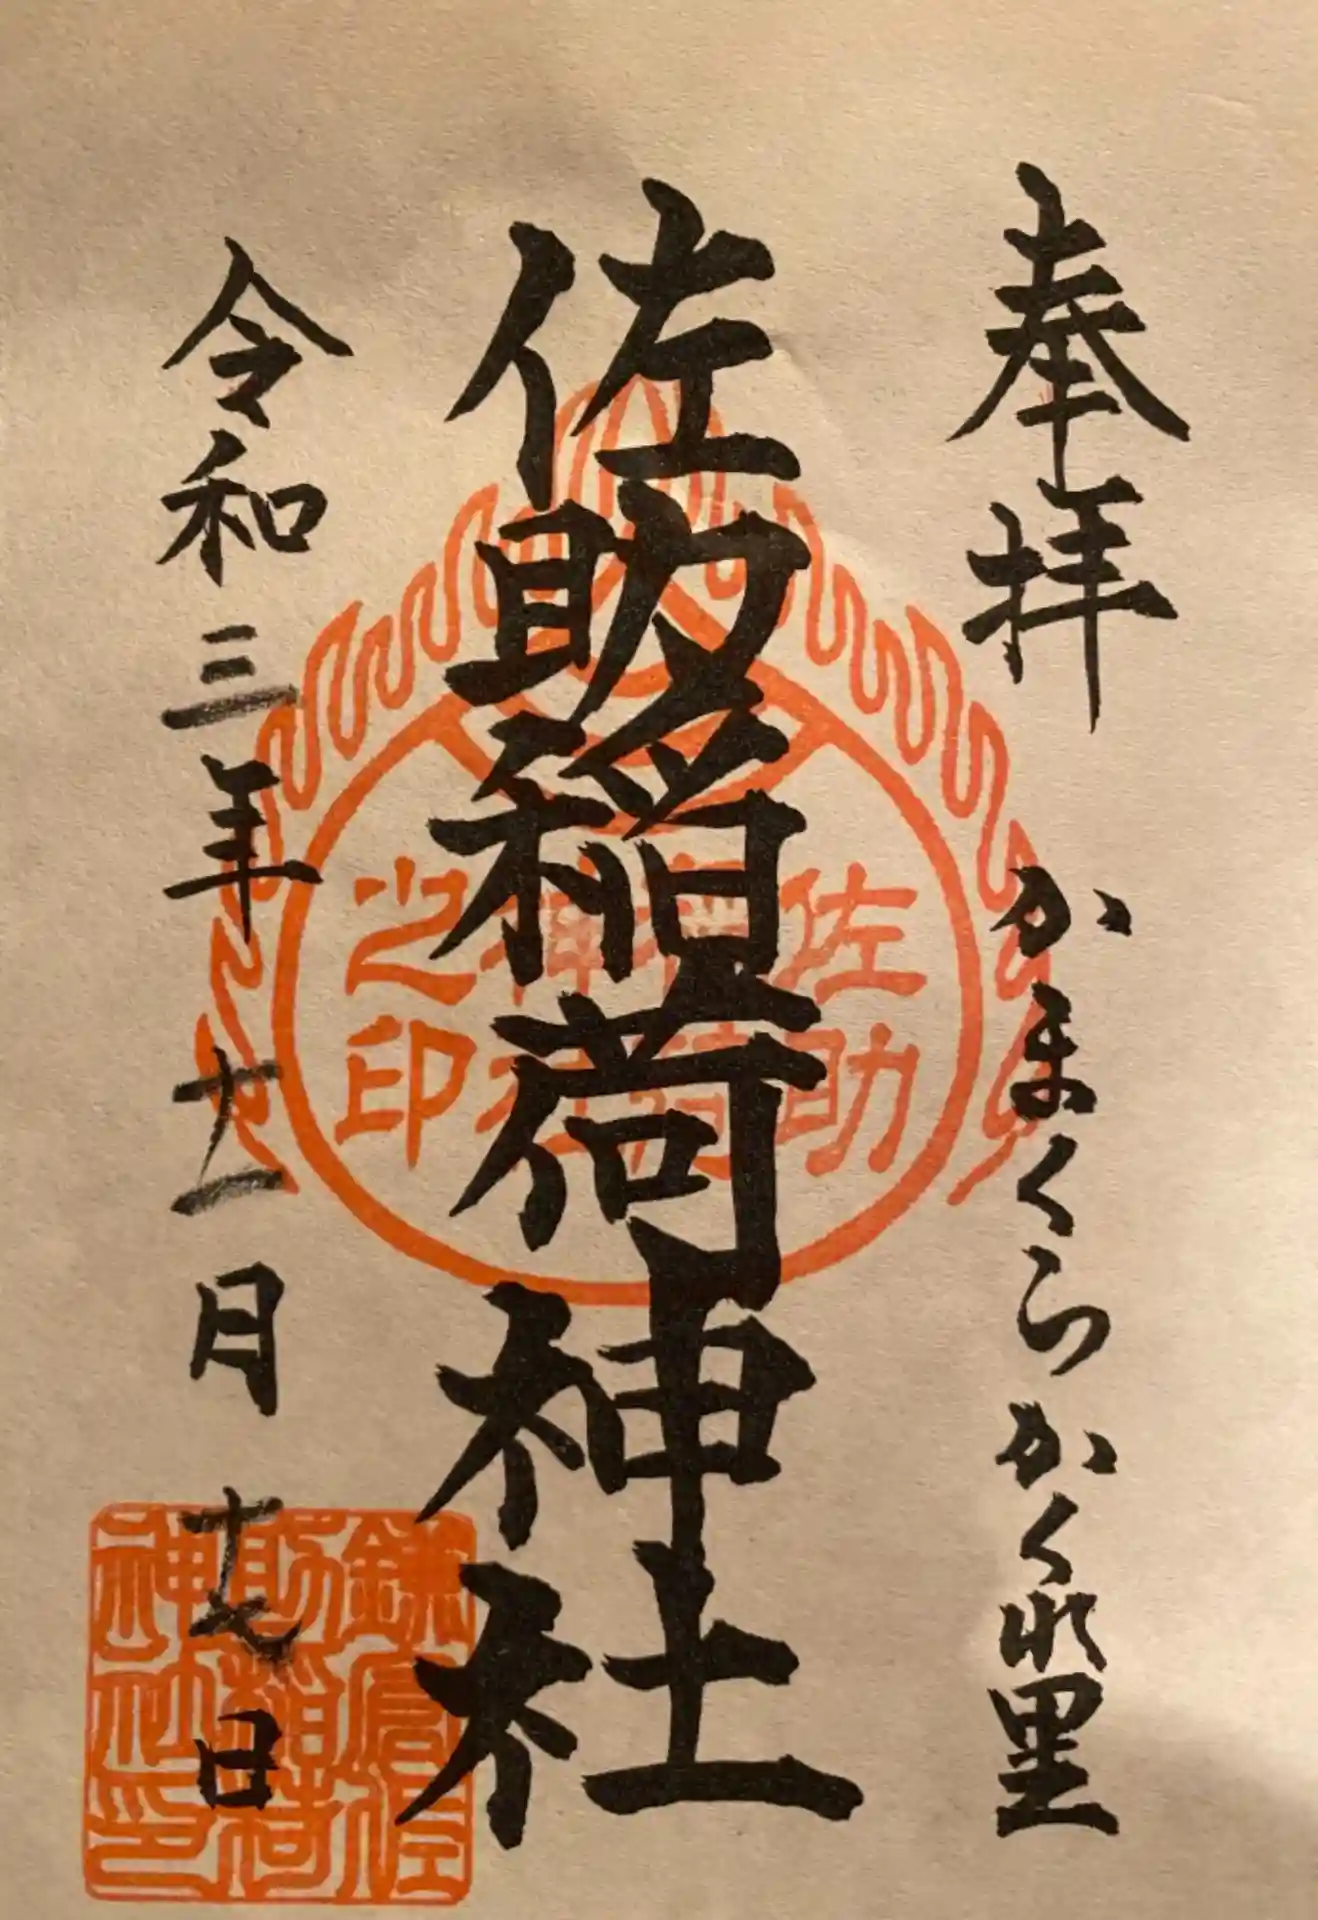 奉拝
かまくらかくれ里
佐助稲荷神社
令和三年十一月十七日
佐助
稲荷
神社
之印
鎌倉佐
助稲荷
神社印